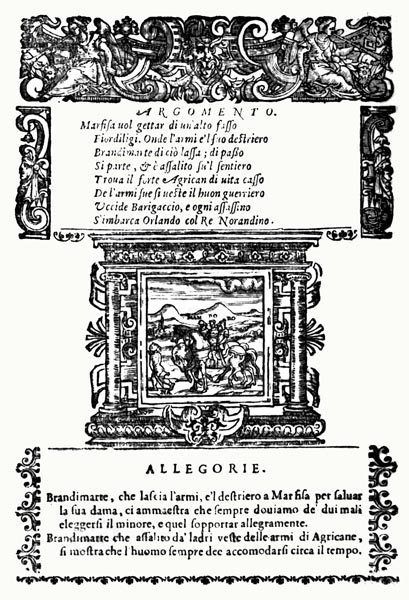 ARGOMENTO.
Marfisa uol gettar di un'alto sasso
Fiordiligi. Onde l'armi e'l suo destriero
Brandimarte di ciò lassa; di passo
Si parte, & è assalito su'l sentiero
Troua il forte Agrican di uita casso
De l'armi sue si ueste il buon guerriero
Vccide Barigaccio, e ogni assassino
S'imbarca Orlando col Re Norandino.
ALLEGORIE.
Brandimarte, che lascia l'armi, e'l destriero a Marfisa per saluar
la sua dama, ci ammaestra che sempre douiamo de' dui mali
eleggersi il minore, e quel sopportar allegramente.
Brandimarte che assalito da' ladri veste delle armi di Agricane,
si mostra che l'huomo sempre dee accomodarsi circa il tempo.